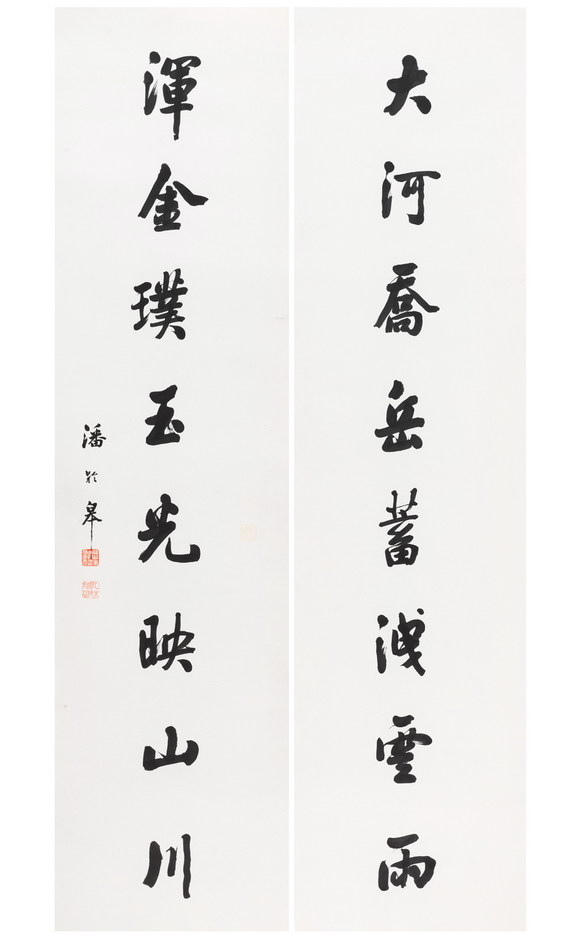 大河喬岳蓄洩雲雨
渾金璞玉光映山川
潘齡皋